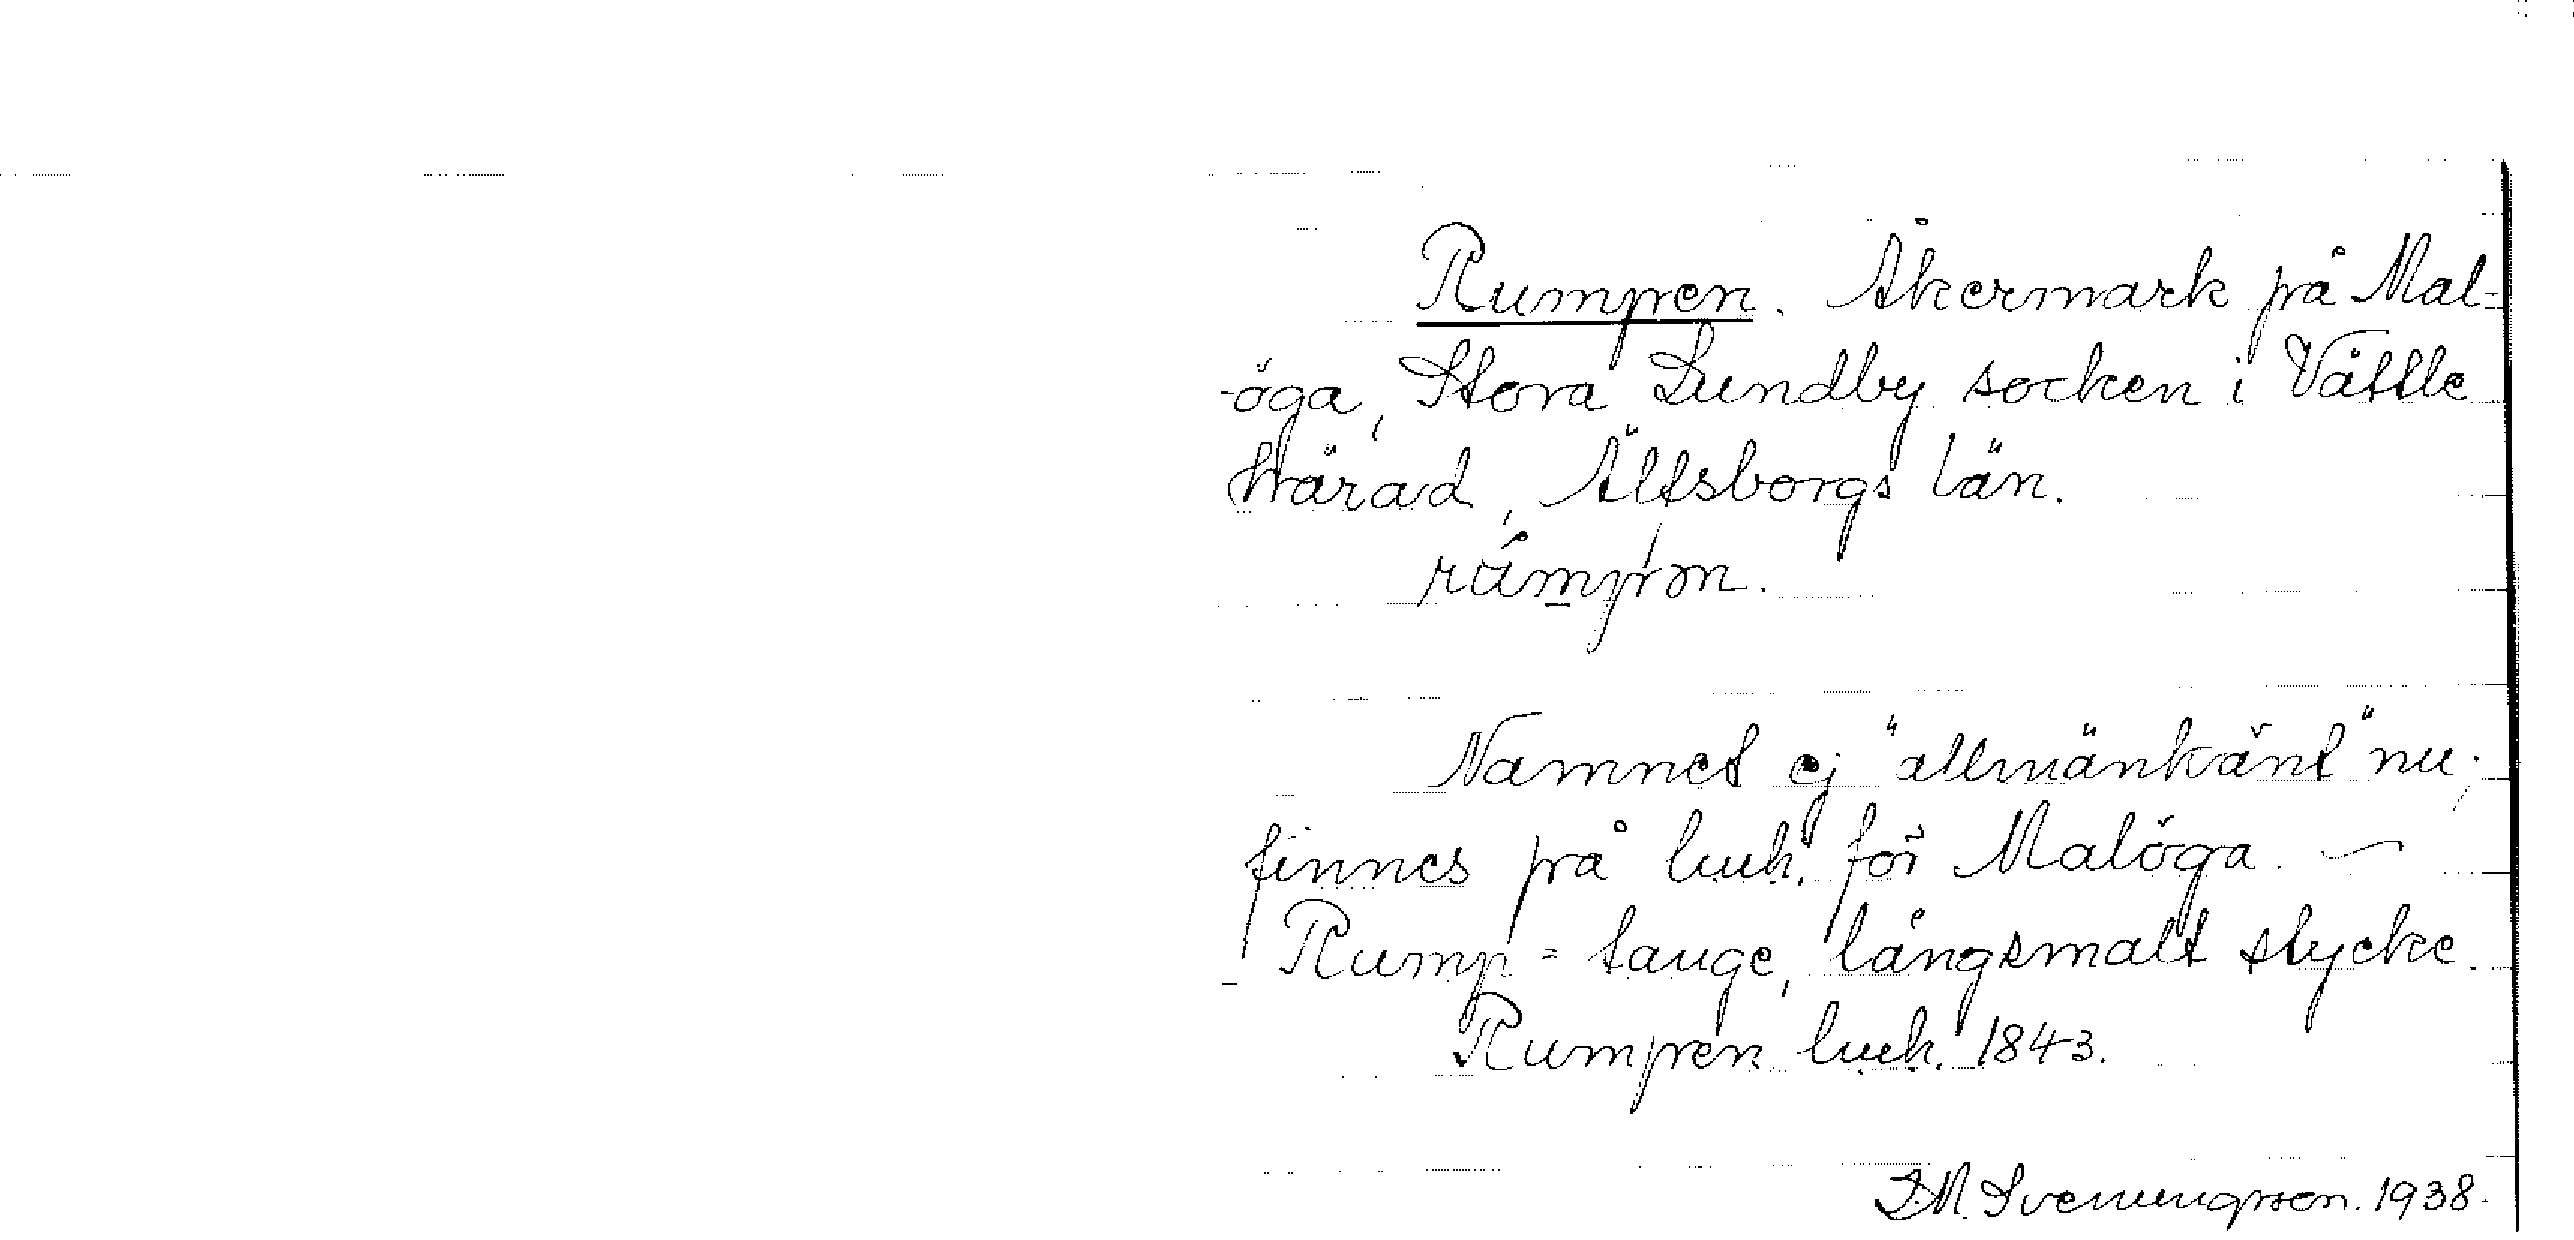 Rumpen. Åkermark på Mal-
-öga, Stora Lundby socken i Vättle
härad, Älfsborgs län.
Namnet ej "allmänkänt" nu;
finnes på luk. för Malöga. –
Rump = tange, långsmalt stycke.
Rumpen luk. 1843.
D.M. Svenungsson. 1938.